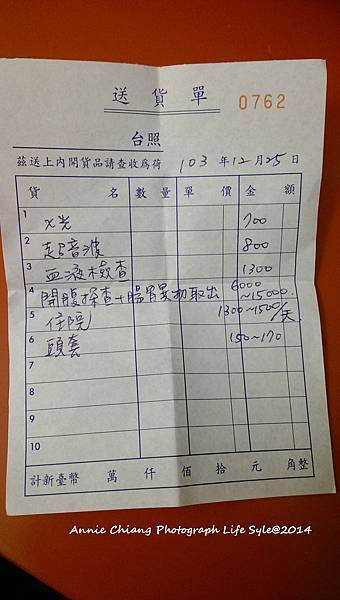 送貨單
0762
台照
茲送上內開貨品請查收為荷 103年12月25日
貨名 數量 單價 金額
1 X光 700
2 超音波 800
3 血液檢查 1300
4 開腹探查+腸胃異物取出 6000~15000
5 住院 1300~1500/天
6 頭套 150~170
7
8
9
10
計新臺幣 萬 仟 佰 拾 元 角整
Annie Chiang Photograph Life Syle@2014